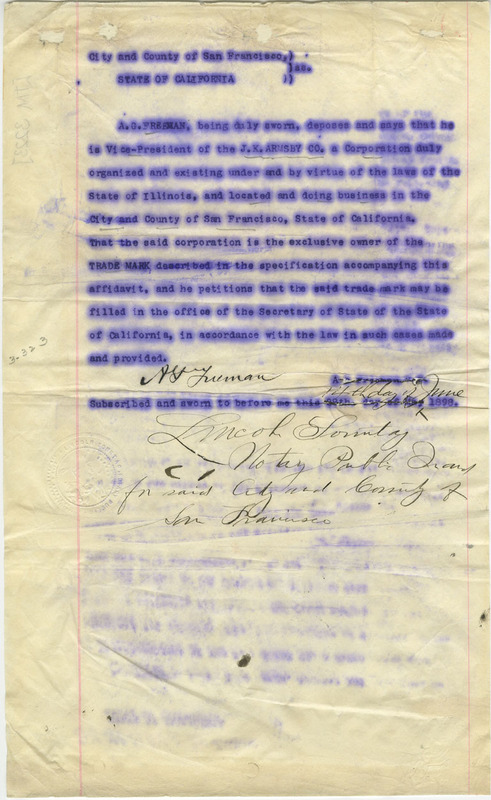 City and County of San Francisco,)
)ss.
STATE OF CALIFORNIA ))
A.G.FREEMAN, being duly sworn, deposes and says that he
is Vice-President of the J.K.ARMSBY CO. a Corporation duly
organized and existing under and by virtue of the laws of the
State of Illinois, and located and doing business in the
City and County of San Francisco, State of California,
that the said corporation is the exclusive owner of the
TRADE MARK described in the specification accompanying this
affidavit, and he petitions that the said trade mark may be
filled in the office of the Secretary of State of the State
of California, in accordance with the law in such cases made
and provided.
3-323
A G Freeman
day of June
Subscribed and sworn to before me this 1899.
Lincoln Sonntag
Notary Public In and
for said City and County of
San Francisco